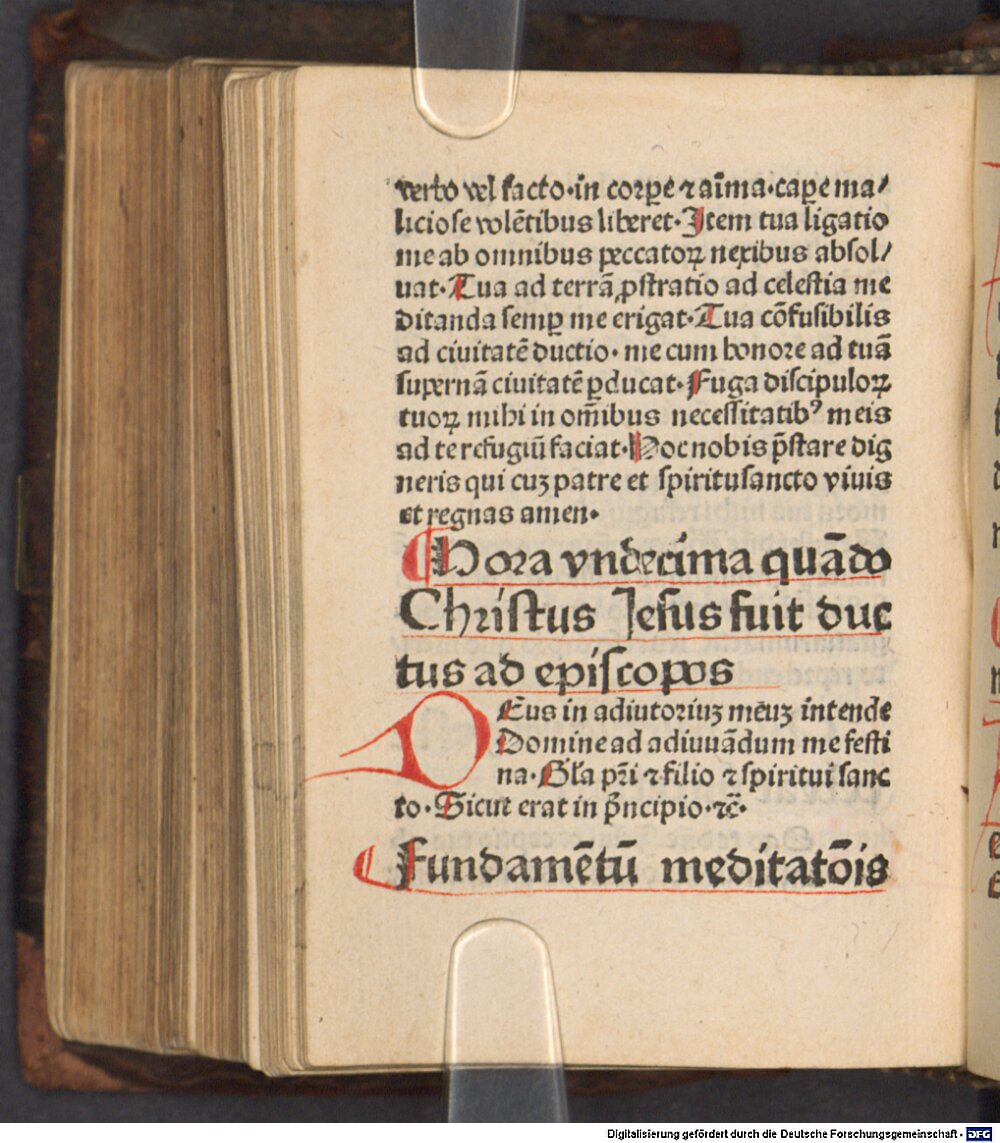 verbo vel facto·in corꝑe ⁊ aīma·caꝑe ma/
liciose volētibus liberet·Item tua ligatio
me ab omnibus peccatoꝝ nexibus absol/
uat·Tua ad terrā ꝓstratio ad celestia me
ditanda semꝑ me erigat·Tua cōfusibilis
ad ciuitatē ductio·me cum honore ad tuā
supernā ciuitatē ꝑducat·Fuga discipuloꝝ
tuoꝝ mihi in om̄ibus necessitatibꝰ meis
ad te refugiū faciat·Hoc nobis p̄stare dig
neris qui cuꝫ patre et spiritusancto viuis
et regnas amen·
Hora vndecima quādo
Christus Jesus fuit duc
tus ad episcopos
DEus in adiutoriuꝫ meuꝫ intende
Domine ad adiuuādum me festi
na·Gl̄a pr̄i ⁊ filio ⁊ spiritui sanc
to·Sicut erat in p̄ncipio·⁊c̄·
Fundamētū meditatōis
Digitalisierung gefördert durch die Deutsche Forschungsgemeinschaft - DFG